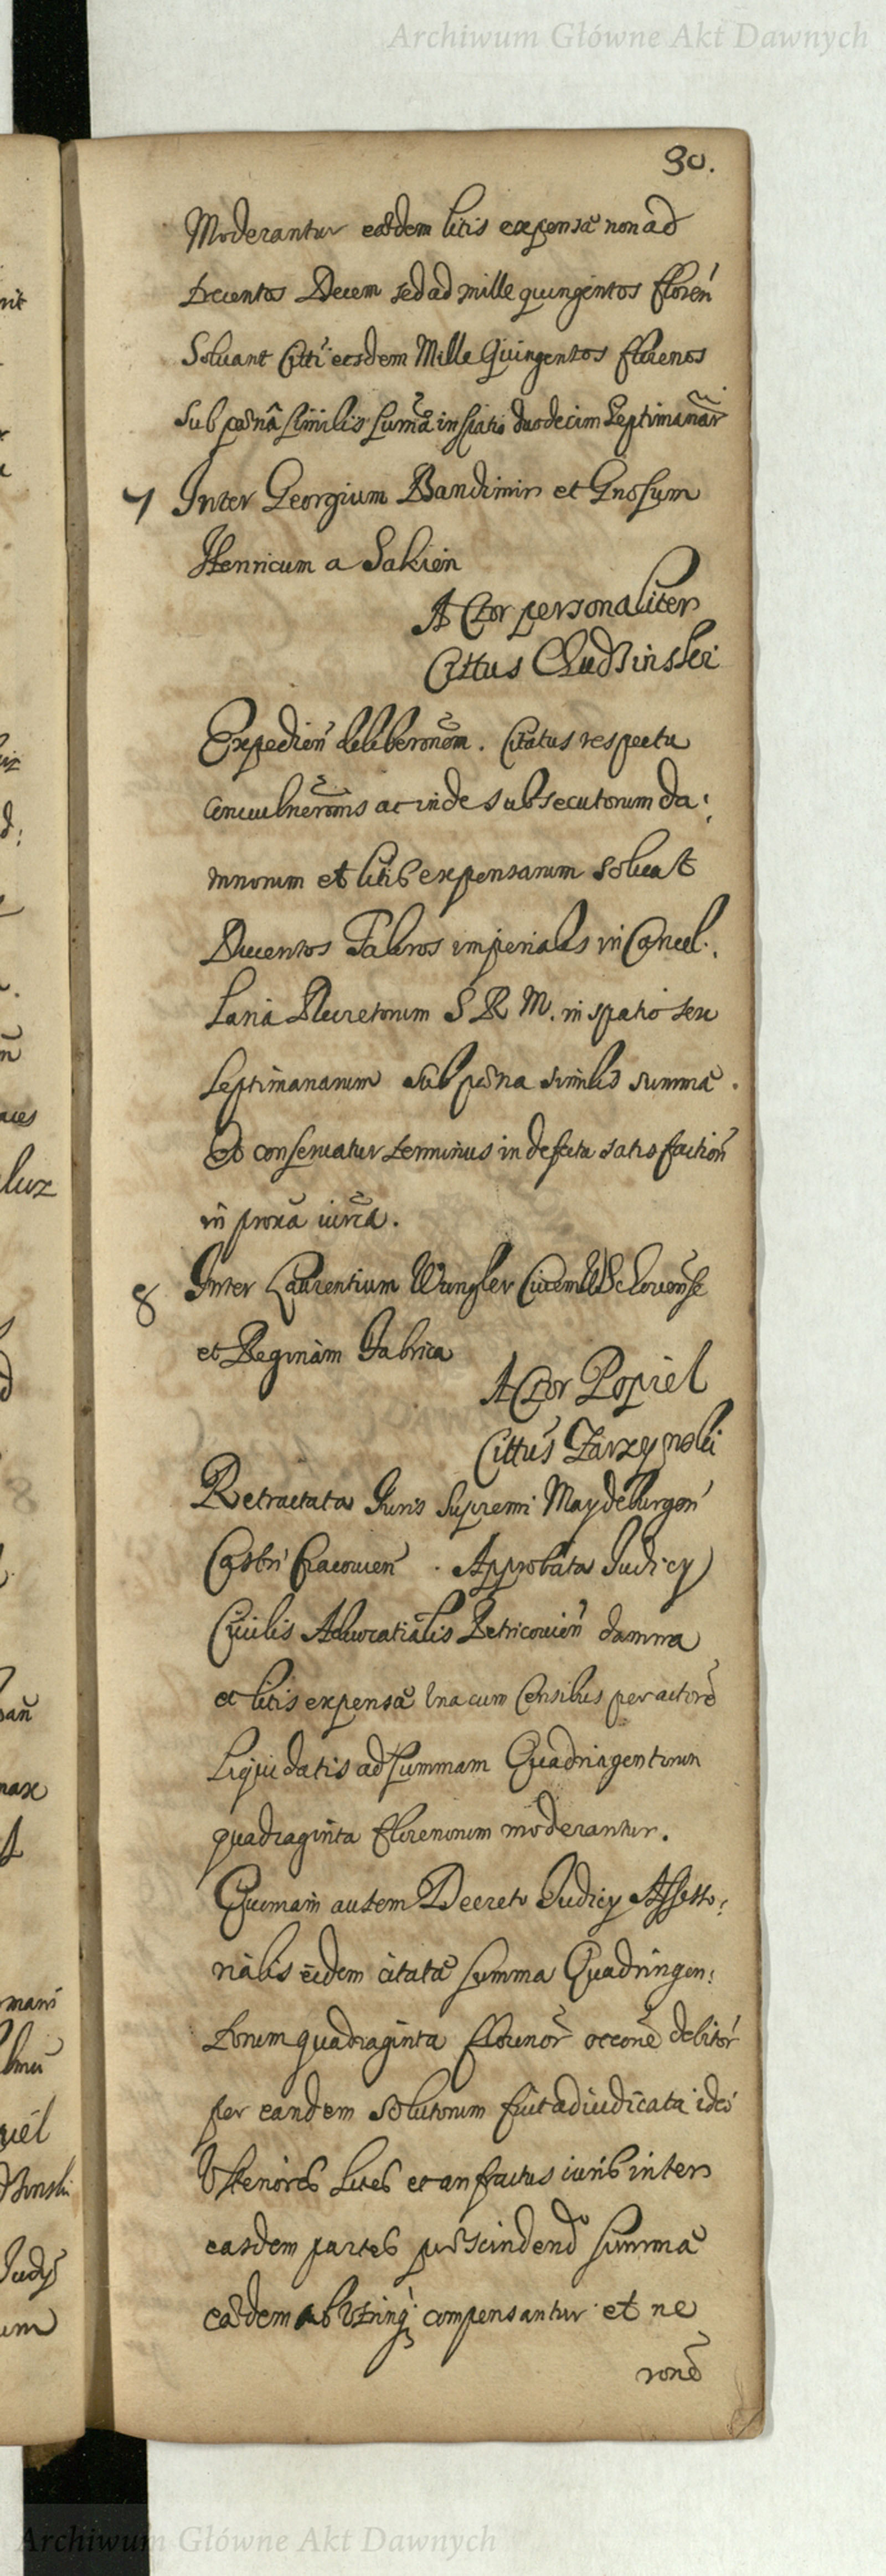 Archiwum Główne Akt Dawnych
30.
Moderantur eaedem litis expensae non ad
Ducentos Decem sed ad mille quingentos floren
Soluant Citti eosdem Mille Quingentos florenos
sub poena similis summae in spatio duodecim septimanar
7 Inter Georgium Bandimin et Gnosum
Henricum a Sakien
Actor personaliter
Cittus Chudzinski
Expedien deliberonem. Citatus respectu
conuulneronis ac inde subsecutorum da:
mnorum et litis expensarum soluat
Ducentos Taleros imperiales in Cancel:
laria Decretorum S R M. in spatio sex
septimanarum sub poena similis summae.
Et conseruatur terminus in defectu satisfaction
in proxa iurca.
8 Inter Laurentium Wangler Ciuem
et Reginam Fabrica
Actor Popiel
Cittus Zarzynski
Retractata Juris Supremi Maydeburgen
Castri Cracouien. Approbata Judicy
Ciuilis Aduocatialis Petricouien damna
et litis expensae una cum Censibus per actore
Liquidatis ad summam Quadringentorum
quadraginta florenorum moderantur.
Quoniam autem Decreto Judicy Assesso:
rialis eidem citatae summa Quadringen:
torum quadraginta florenor occone debitor
per eandem solutorum fuit adiudicata ideo
lites et anfractus iuris inter
easdem partes praescindend summae
eaedem ab utrinq compensantur et ne
rone
Archiwum Główne Akt Dawnych